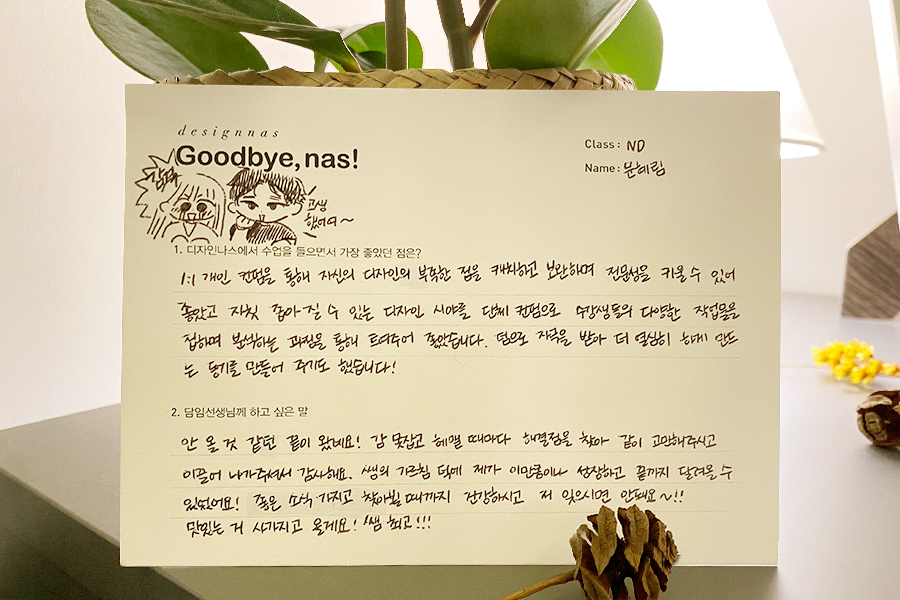 designnas
Goodbye, nas!
Class: ND
Name: 문혜림
감격
고생
했어여~
1. 디자인나스에서 수업을 들으면서 가장 좋았던 점은?
1:1 개인 컨펌을 통해 자신의 디자인의 부족한 점을 캐치하고 보완하며 전문성을 키울 수 있어
좋았고 자칫 좁아질 수 있는 디자인 시야를 단체 컨펌으로 수강생들의 다양한 작업물을
접하며 분석하는 과정을 통해 트여주어 좋았습니다. 덤으로 자극을 받아 더 열심히 하게 만드
는 동기를 만들어 주기도 했습니다!
2. 담임선생님께 하고 싶은 말
안 올 것 같던 끝이 왔네요! 감 못잡고 헤맬 때마다 해결점을 찾아 같이 고민해주시고
이끌어 나가주셔서 감사해요. 쌤의 가르침 덕에 제가 이만큼이나 성장하고 끝까지 달려올 수
있었어요! 좋은 소식 가지고 찾아뵐 때까지 건강하시고 저 잊으시면 안돼요~!!
맛있는 거 사가지고 올게요! 쌤 최고!!!